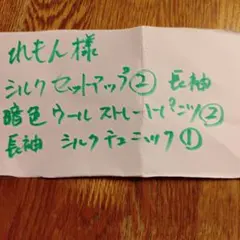 れもん様
シルクセットアップ② 長袖
暗色ウールストレートパンツ②
長袖 シルクチュニック①